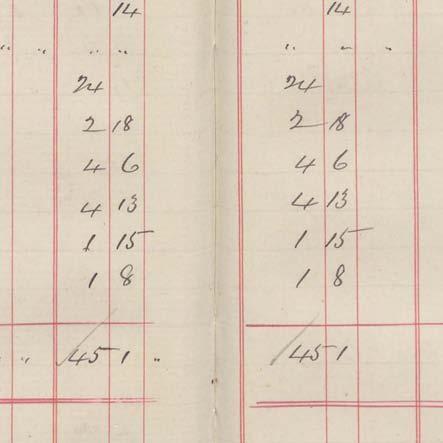 14 14
" " " " " " "
24 24
2 18 2 18
4 6 4 6
4 13 4 13
1 15 1 15
1 8 1 8
" " 45 1 " 45 1